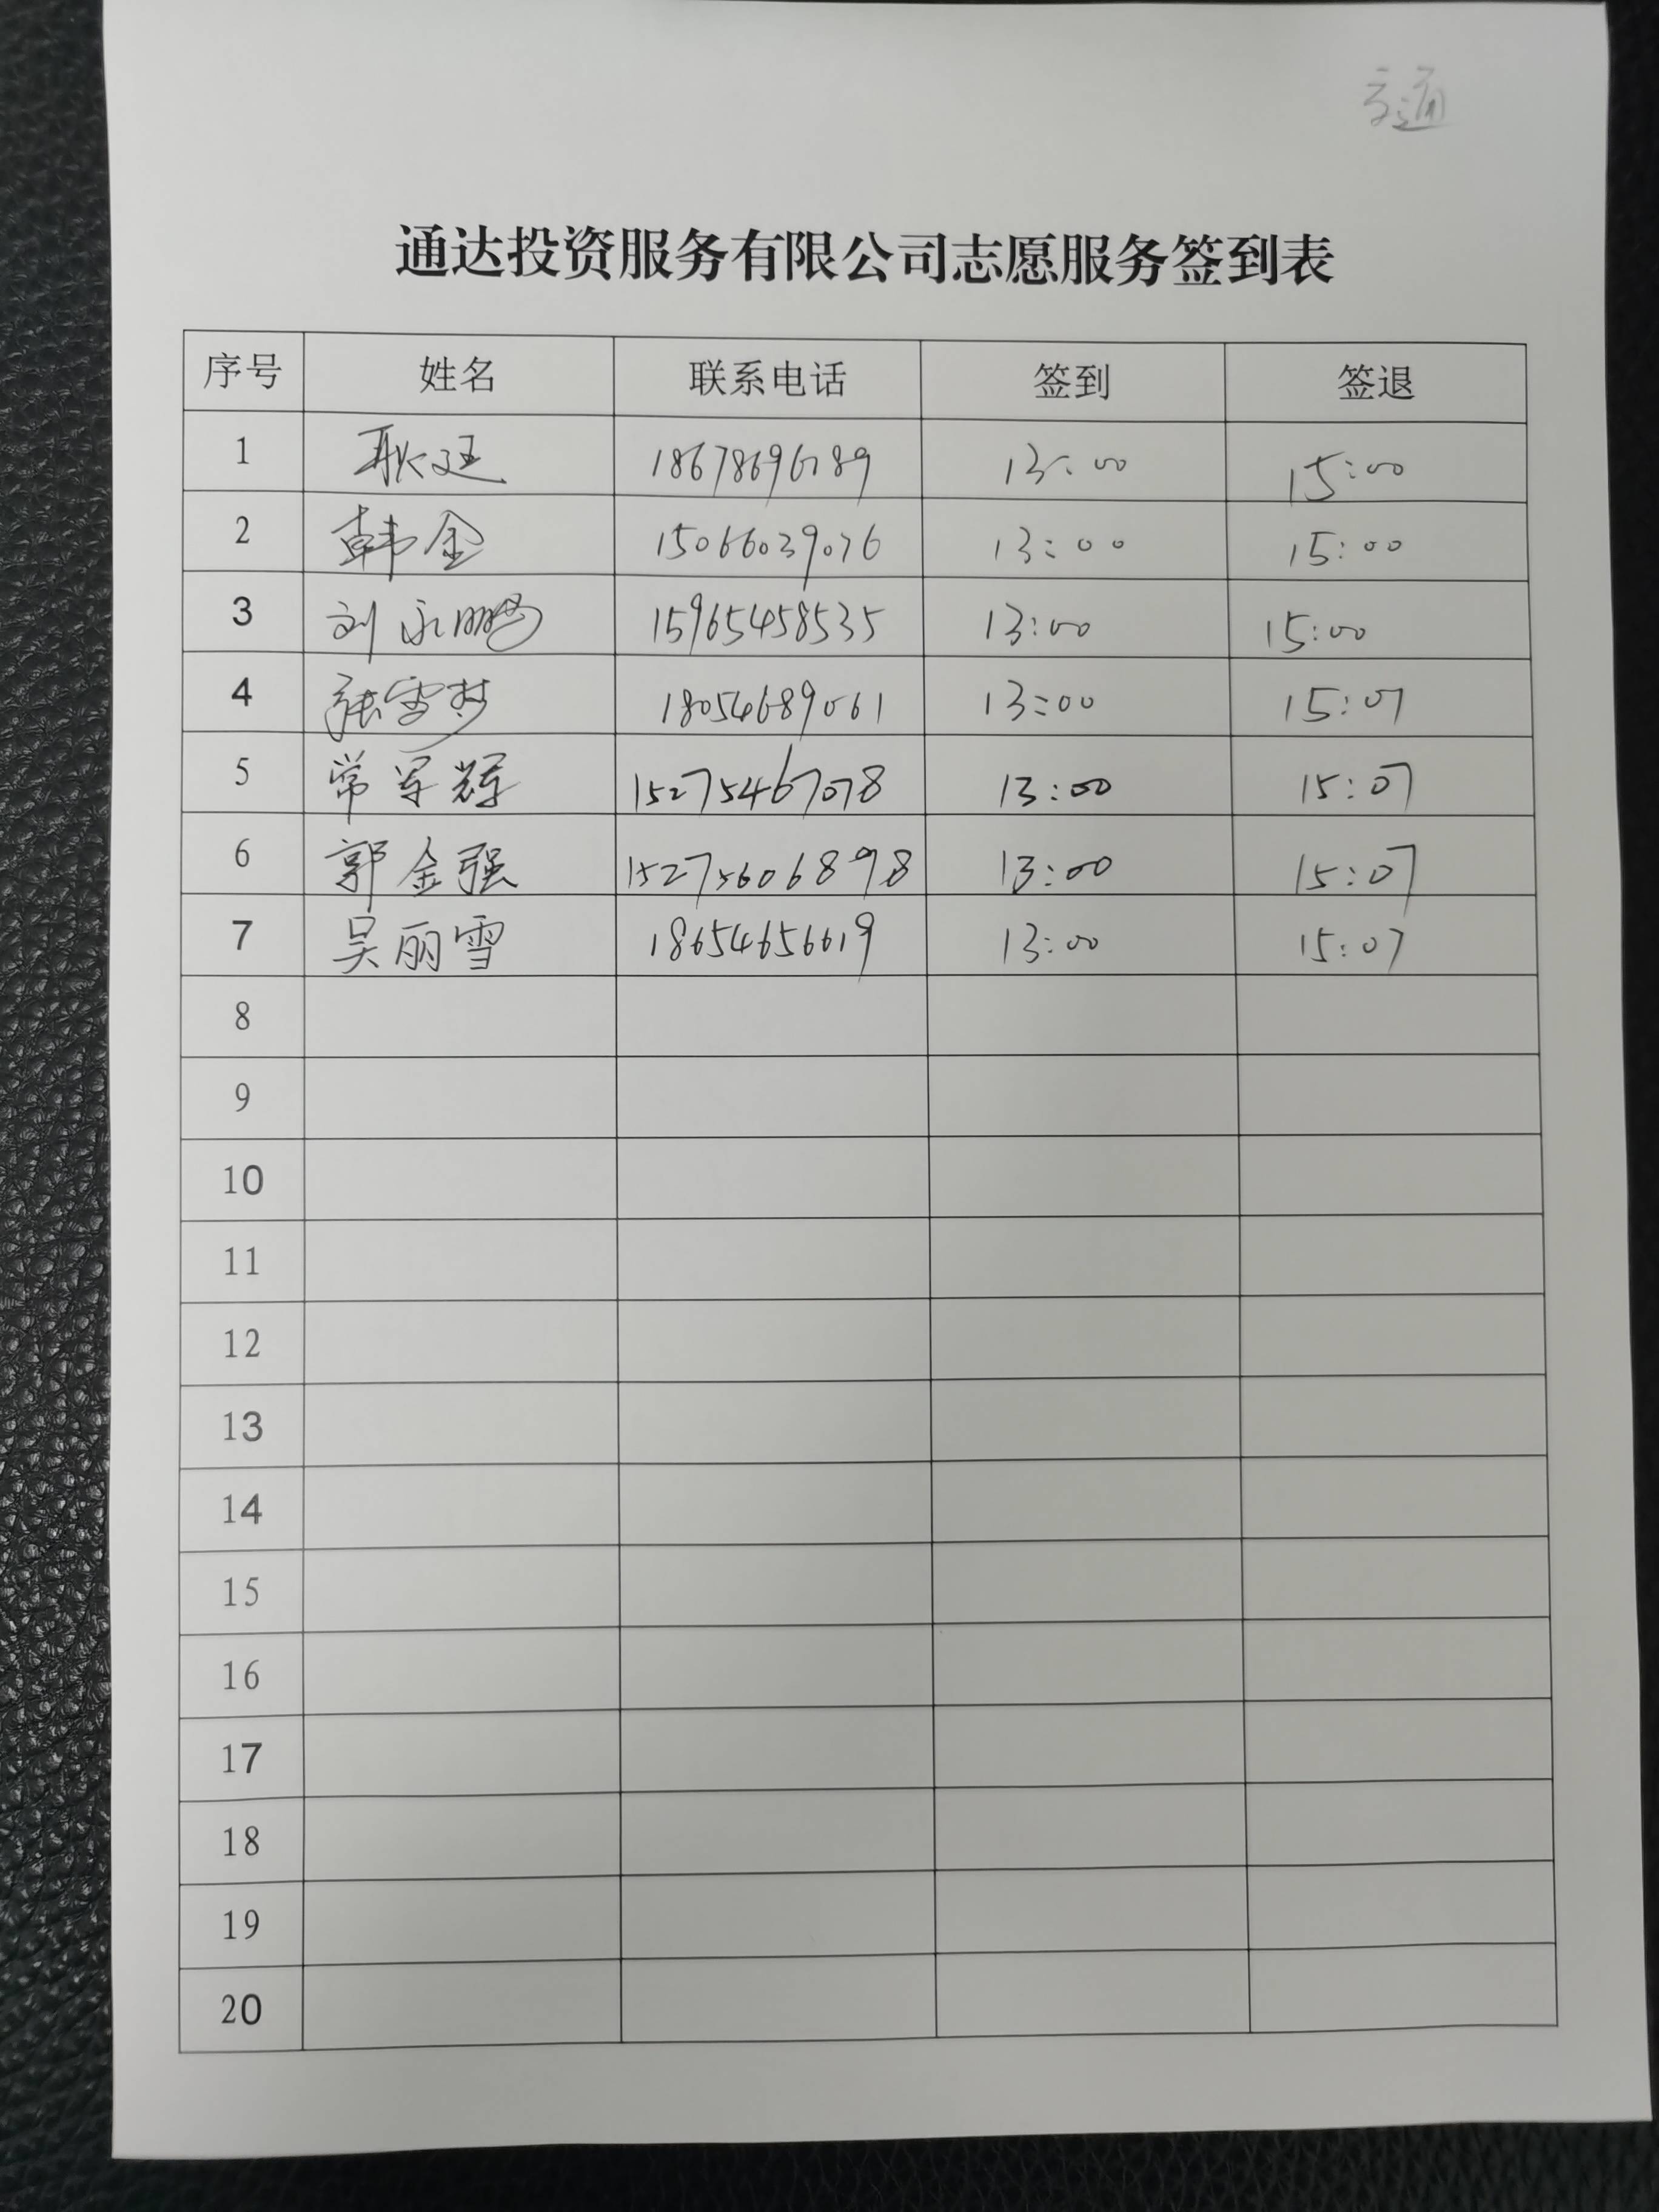 交通
通达投资服务有限公司志愿服务签到表
序号 姓名 联系电话 签到 签退
1 耿廷 18678696789 13:00 15:00
2 韩金 15066039076 13:00 15:00
3 刘永鹏 15965458535 13:00 15:00
4 张雪梦 18054689061 13:00 15:07
5 常军辉 15275467078 13:00 15:07
6 郭金强 15275606898 13:00 15:07
7 吴丽雪 18654656619 13:00 15:07
8
9
10
11
12
13
14
15
16
17
18
19
20